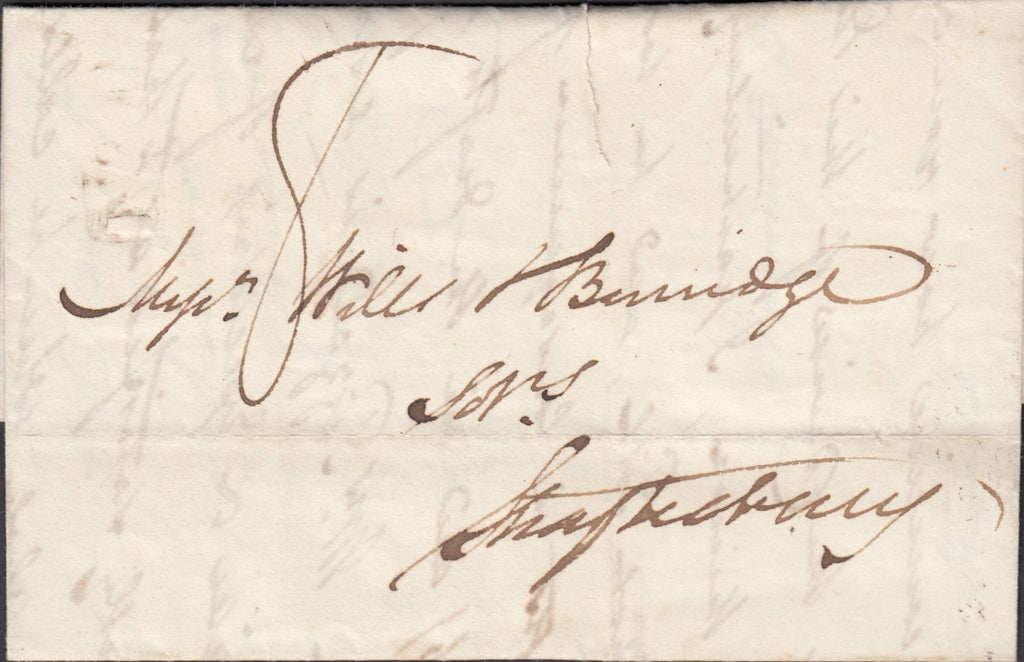 8
Messrs. Wills & Burridge
Solrs.
Shaftesbury